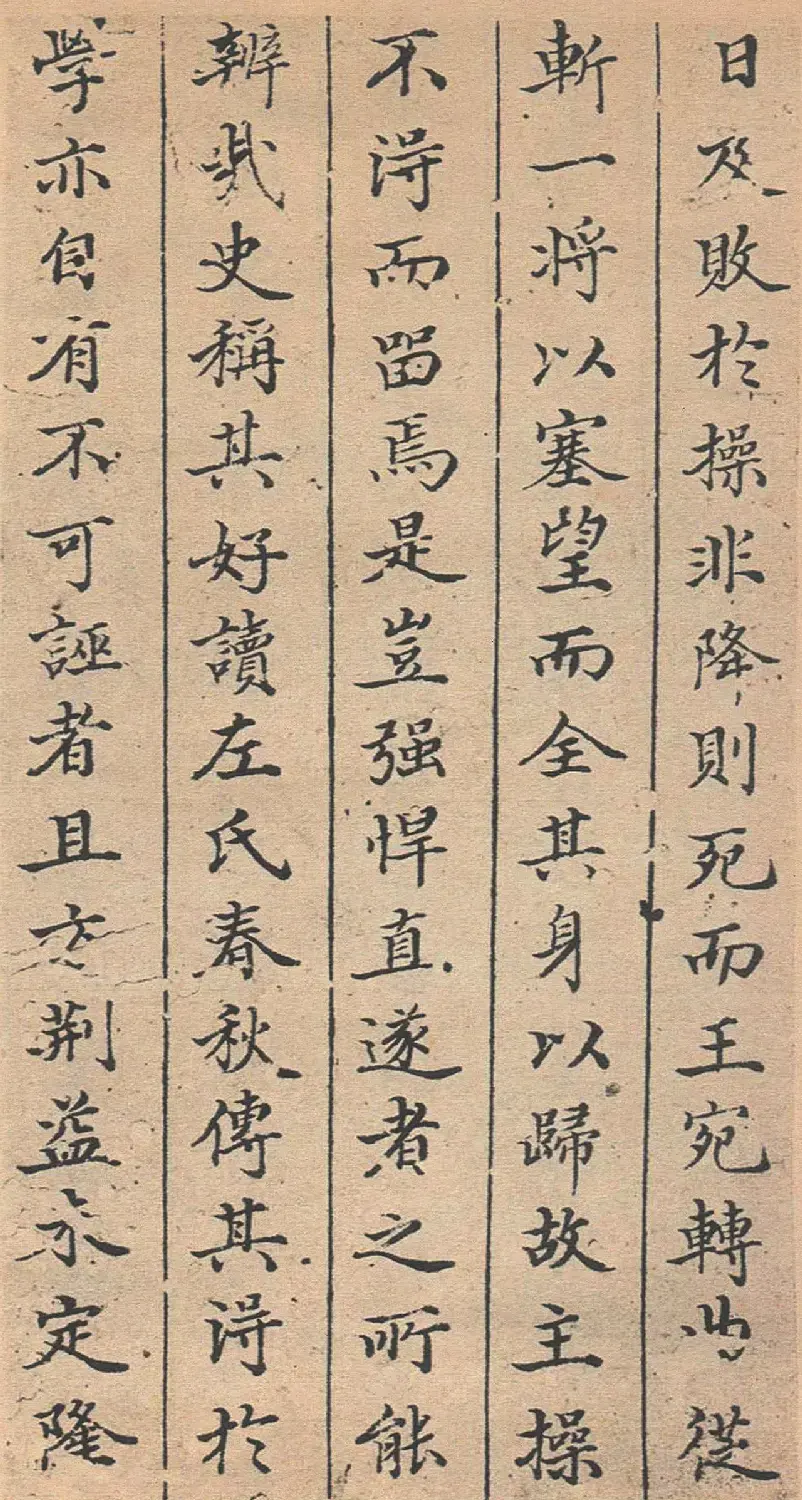 日及敗於操非降則死而王宛轉曲從
斬一將以塞望而全其身以歸故主操
不得而留焉是豈强悍直遂者之所能
辨哉史稱其好讀左氏春秋傳其得於
學亦自有不可誣者且方荆益未定隆